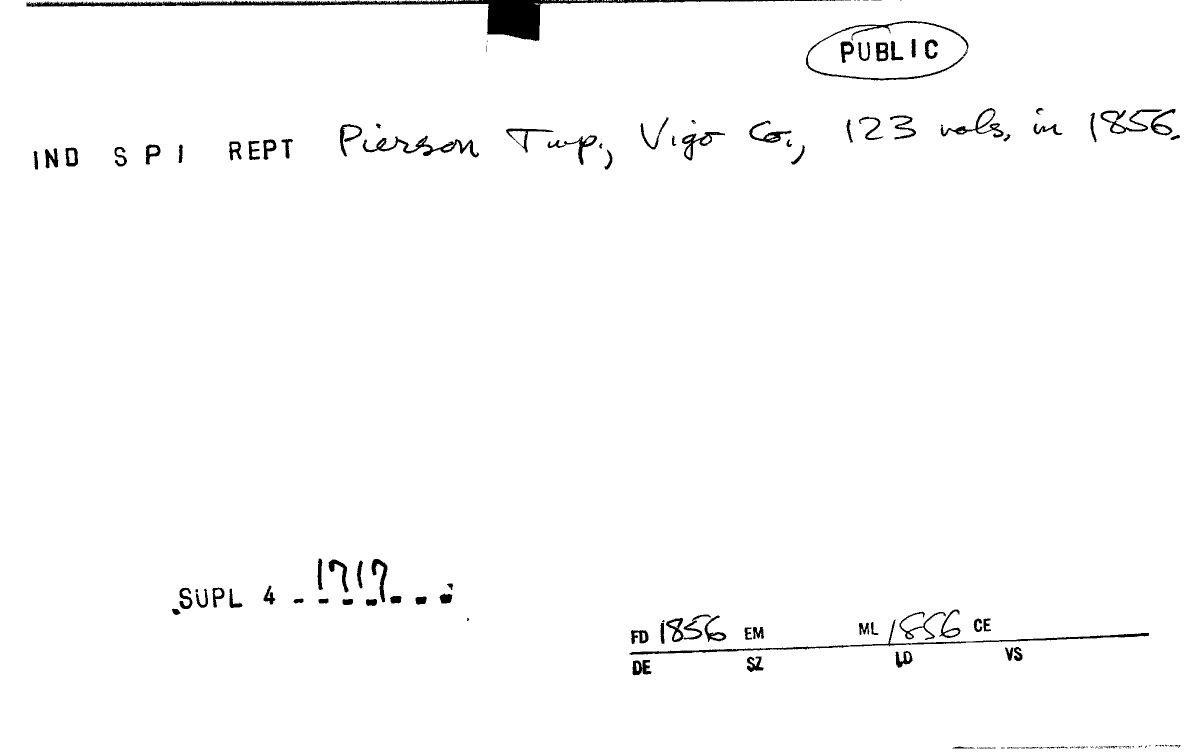 PUBLIC
IND S P I REPT Pierson Twp., Vigo Co., 123 vols. in 1856.
SUPL 4 1717
FD 1856 EM ML 1856 CE
DE SZ LD VS